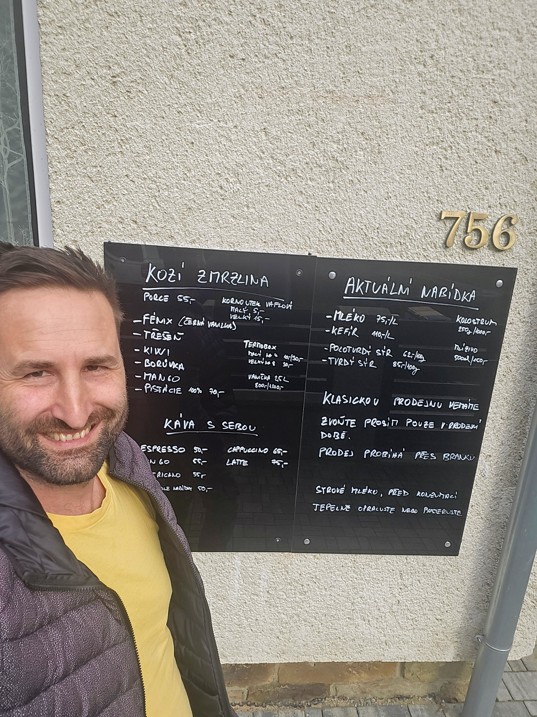 756
KOZÍ ZMRZLINA
PORCE 55,-
KORNOUTEK VAFLOVÝ
MALÝ 5,-
VELKÝ 15,-
- FÉNIX (ČERNÁ VANILKA)
- TŘEŠEŇ
- KIWI
- BORŮVKA
- MANGO
- PISTÁCIE 100% 70,-
TERMOBOX
KÁVA S SEBOU
ESPRESSO 50,-
55,-
55,-
50,-
CAPPUCCINO 65,-
LATTE
AKTUÁLNÍ NABÍDKA
- MLÉKO 75,-/L
- KEFÍR 110,-/L
- POLOTVRDÝ SÝR
- TVRDÝ SÝR
KOLOSTRUM
KLASICKOU PRODEJNU NEMÁME
ZVOŇTE PROSÍM POUZE V PRODEJNÍ
DOBĚ.
PRODEJ PROBÍHÁ PŘES BRANKU
SYROVÉ MLÉKO, PŘED KONZUMACÍ
TEPELNĚ OPRACUJTE NEBO PASTERUJTE